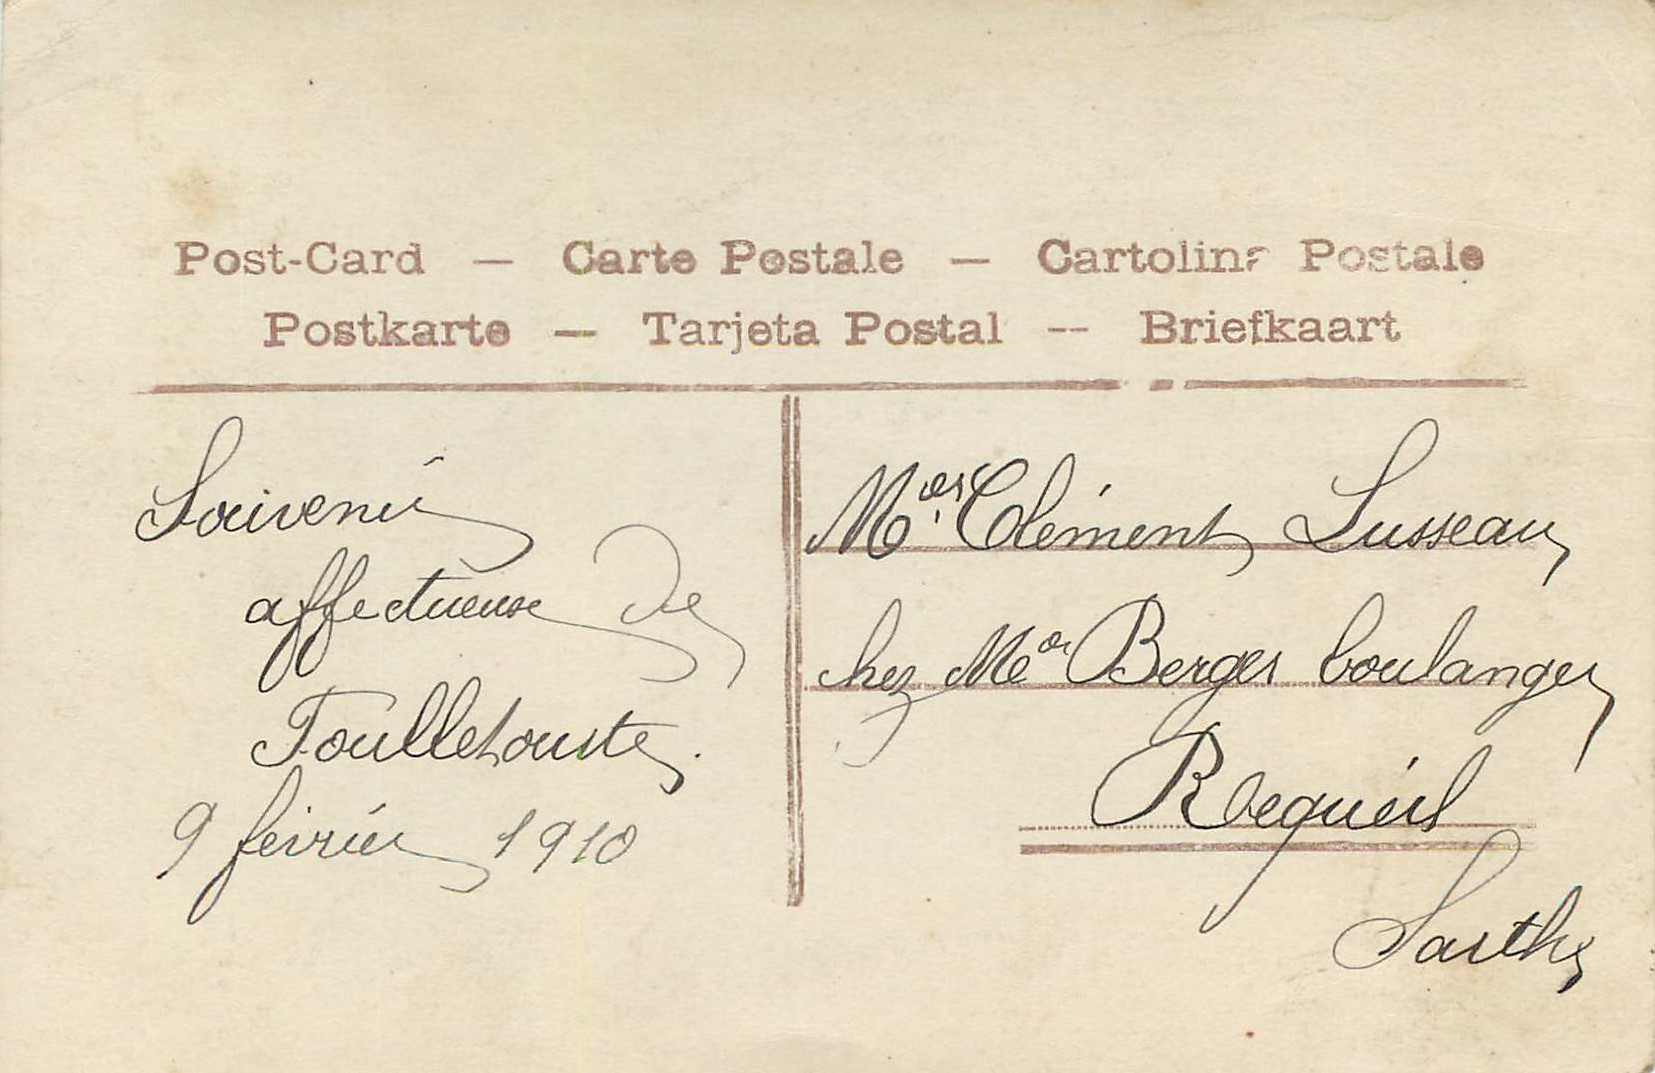 Post-Card — Carte Postale — Cartolina Postale
Postkarte — Tarjeta Postal — Briefkaart
Souvenir
affectueuse De
Toulletouste.
9 feivrier 1910
Clément Lusseau
chez Berger boulanger
Requeil
Sarthe